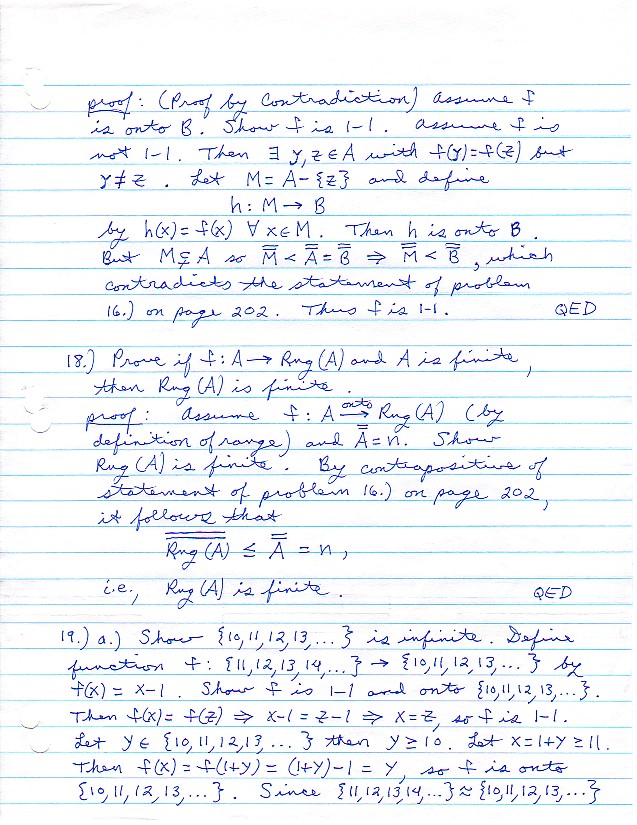 proof: (Proof by Contradiction) Assume f
is onto B. Show f is 1-1. Assume f is
not 1-1. Then ∃ y,z ∈ A with f(y)=f(z) but
y≠z. Let M = A-{z} and define
h: M → B
by h(x)=f(x) ∀ x∈M. Then h is onto B.
But M⊊A so M̿ < A̿ = B̿ ⇒ M̿ < B̿, which
contradicts the statement of problem
16.) on page 202. Thus f is 1-1. QED
18.) Prove if f: A → Rng(A) and A is finite,
then Rng(A) is finite.
proof: Assume f: A onto→ Rng(A) (by
definition of range) and A̿=n. Show
Rng(A) is finite. By contrapositive of
statement of problem 16.) on page 202,
it follows that
R̿n̿g̿(̿A̿)̿ ≤ A̿ = n,
i.e., Rng(A) is finite. QED
19.) a.) Show {10,11,12,13,...} is infinite. Define
function f: {11,12,13,14,...} → {10,11,12,13,...} by
f(x) = x-1. Show f is 1-1 and onto {10,11,12,13,...}.
Then f(x)=f(z) ⇒ x-1=z-1 ⇒ x=z, so f is 1-1.
Let y ∈ {10,11,12,13,...} then y≥10. Let x=1+y≥11.
Then f(x)=f(1+y)=(1+y)-1=y, so f is onto
{10,11,12,13,...}. Since {11,12,13,14,...}≈{10,11,12,13,...}